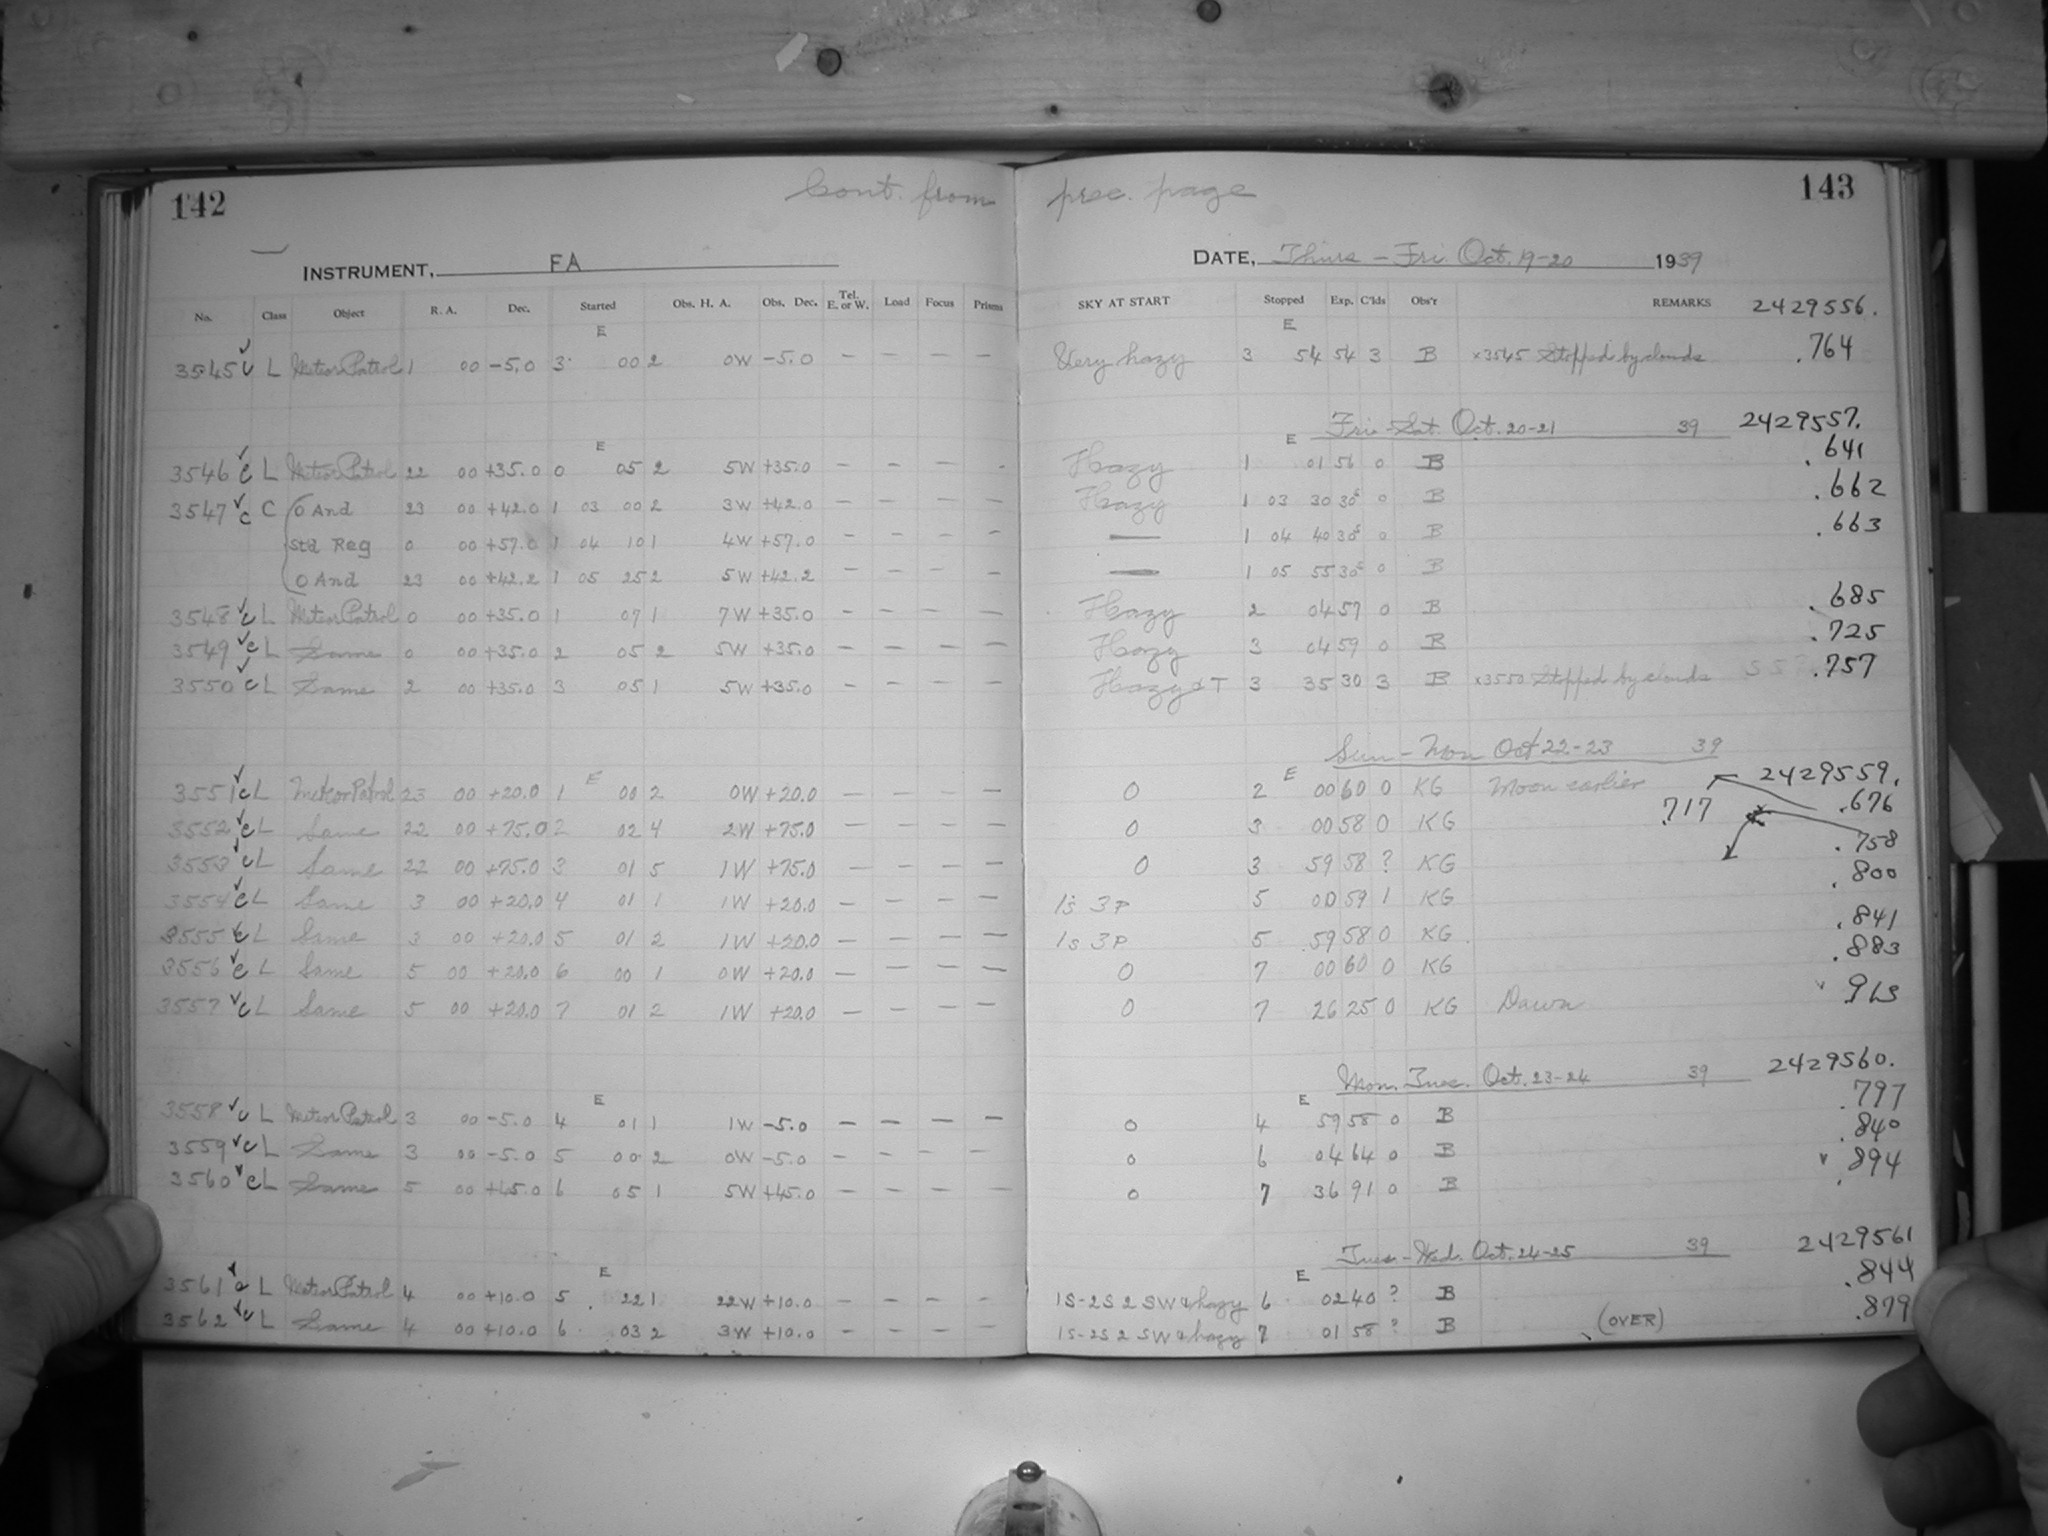 142 Cont. from prec. page 143
INSTRUMENT, FA DATE, Thurs - Fri. Oct. 19-20 1939
No. Class Object R. A. Dec. Started Obs. H. A. Obs. Dec. Tel. E. or W. Load Focus Prisms SKY AT START Stopped Exp. C'lds Obs'r REMARKS 2429556.
E E
3545 c L Meteor Patrol 1 00 -5.0 3 00 2 0W -5.0 — — — — Very hazy 3 54 54 3 B x3545 Stopped by clouds .764
Fri-Sat. Oct. 20-21 39 2429557.
E E
3546 c L Meteor Patrol 22 00 +35.0 0 05 2 5W +35.0 - - - - Hazy 1 01 56 0 B .641
3547 c C O And 23 00 +42.0 1 03 00 2 3W +42.0 - - - - Hazy 1 03 30 30s 0 B .662
Std Reg 0 00 +57.0 1 04 10 1 4W +57.0 - - - - — 1 04 40 30s 0 B .663
O And 23 00 +42.2 1 05 25 2 5W +42.2 - - - - — 1 05 55 30s 0 B
3548 c L Meteor Patrol 0 00 +35.0 1 07 1 7W +35.0 - - - - Hazy 2 04 57 0 B .685
3549 c L Same 0 00 +35.0 2 05 2 5W +35.0 - - - - Hazy 3 04 59 0 B .725
3550 c L Same 2 00 +35.0 3 05 1 5W +35.0 - - - - Hazy & T 3 35 30 3 B x3550 Stopped by clouds .757
Sun - Mon Oct 22-23 39
E E 2429559.
3551 c L Meteor Patrol 23 00 +20.0 1 00 2 0W +20.0 — — — — 0 2 00 60 0 KG Moon earlier .676
3552 c L Same 22 00 +75.0 2 02 4 2W +75.0 — — — — 0 3 00 58 0 KG .717
3553 c L Same 22 00 +75.0 3 01 5 1W +75.0 — — — — 0 3 59 58 ? KG .758
3554 c L Same 3 00 +20.0 4 01 1 1W +20.0 — — — — 1s 3P 5 00 59 1 KG .800
3555 c L Same 3 00 +20.0 5 01 2 1W +20.0 — — — — 1s 3P 5 59 58 0 KG .841
3556 c L Same 5 00 +20.0 6 00 1 0W +20.0 — — — — 0 7 00 60 0 KG .883
3557 c L Same 5 00 +20.0 7 01 2 1W +20.0 — — — — 0 7 26 25 0 KG Dawn
Mon. Tues. Oct. 23-24 39 2429560.
E E
3558 c L Meteor Patrol 3 00 -5.0 4 01 1 1W -5.0 — — — — 0 4 59 58 0 B .797
3559 c L Same 3 00 -5.0 5 00 2 0W -5.0 - - - - 0 6 04 64 0 B .840
3560 c L Same 5 00 +45.0 6 05 1 5W +45.0 - - - - 0 7 36 91 0 B .894
Tues - Wed. Oct. 24-25 39 2429561
E E
3561 c L Meteor Patrol 4 00 +10.0 5 22 1 22W +10.0 - - - - 1S-2S 2 SW & hazy 6 02 40 ? B .844
3562 c L Same 4 00 +10.0 6 03 2 3W +10.0 - - - - 1S-2S 2 SW & hazy 7 01 58 ? B (OVER) .879